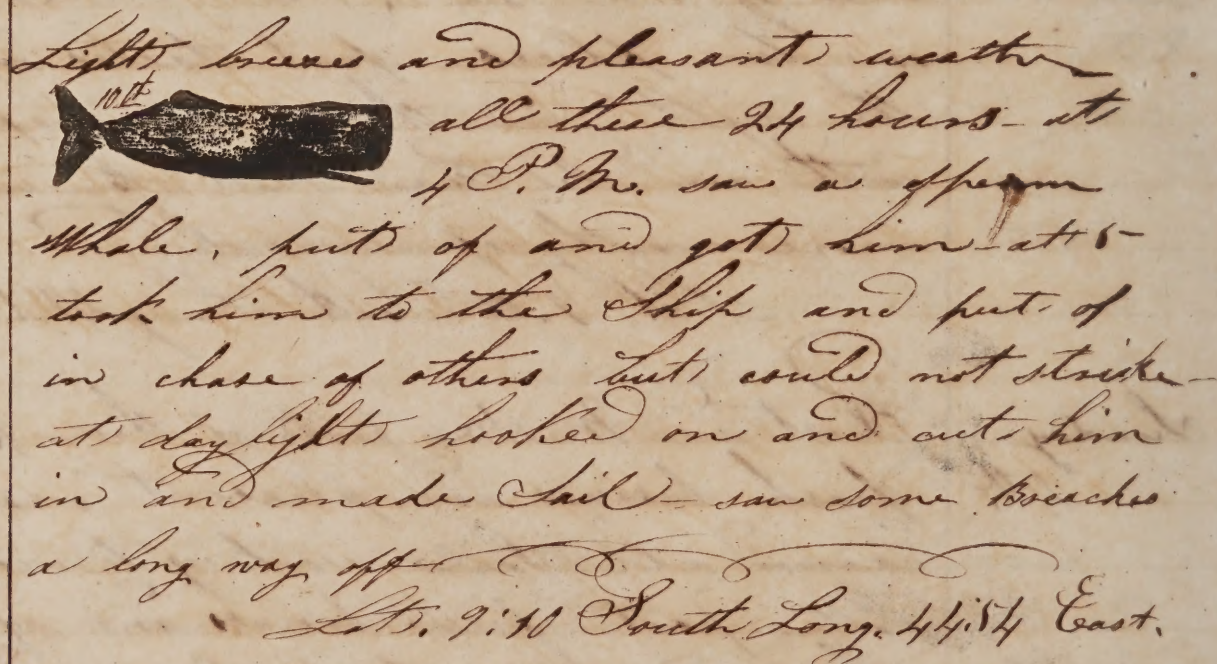 Light breezes and pleasant weather
10th
all these 24 hours - at
4 P.M. saw a sperm
Whale, put of and got him - at 5 -
took him to the Ship and put of
in chase of others but could not strike -
at day light hooked on and cut him
in and made Sail - saw some Breaches
a long way off
Lat. 9:10 South Long. 44:54 East.